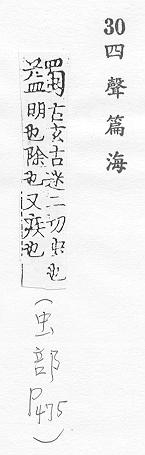 30 四聲篇海
蠲古玄古迷二切虫也
明也除也又疾也
(虫部P475)